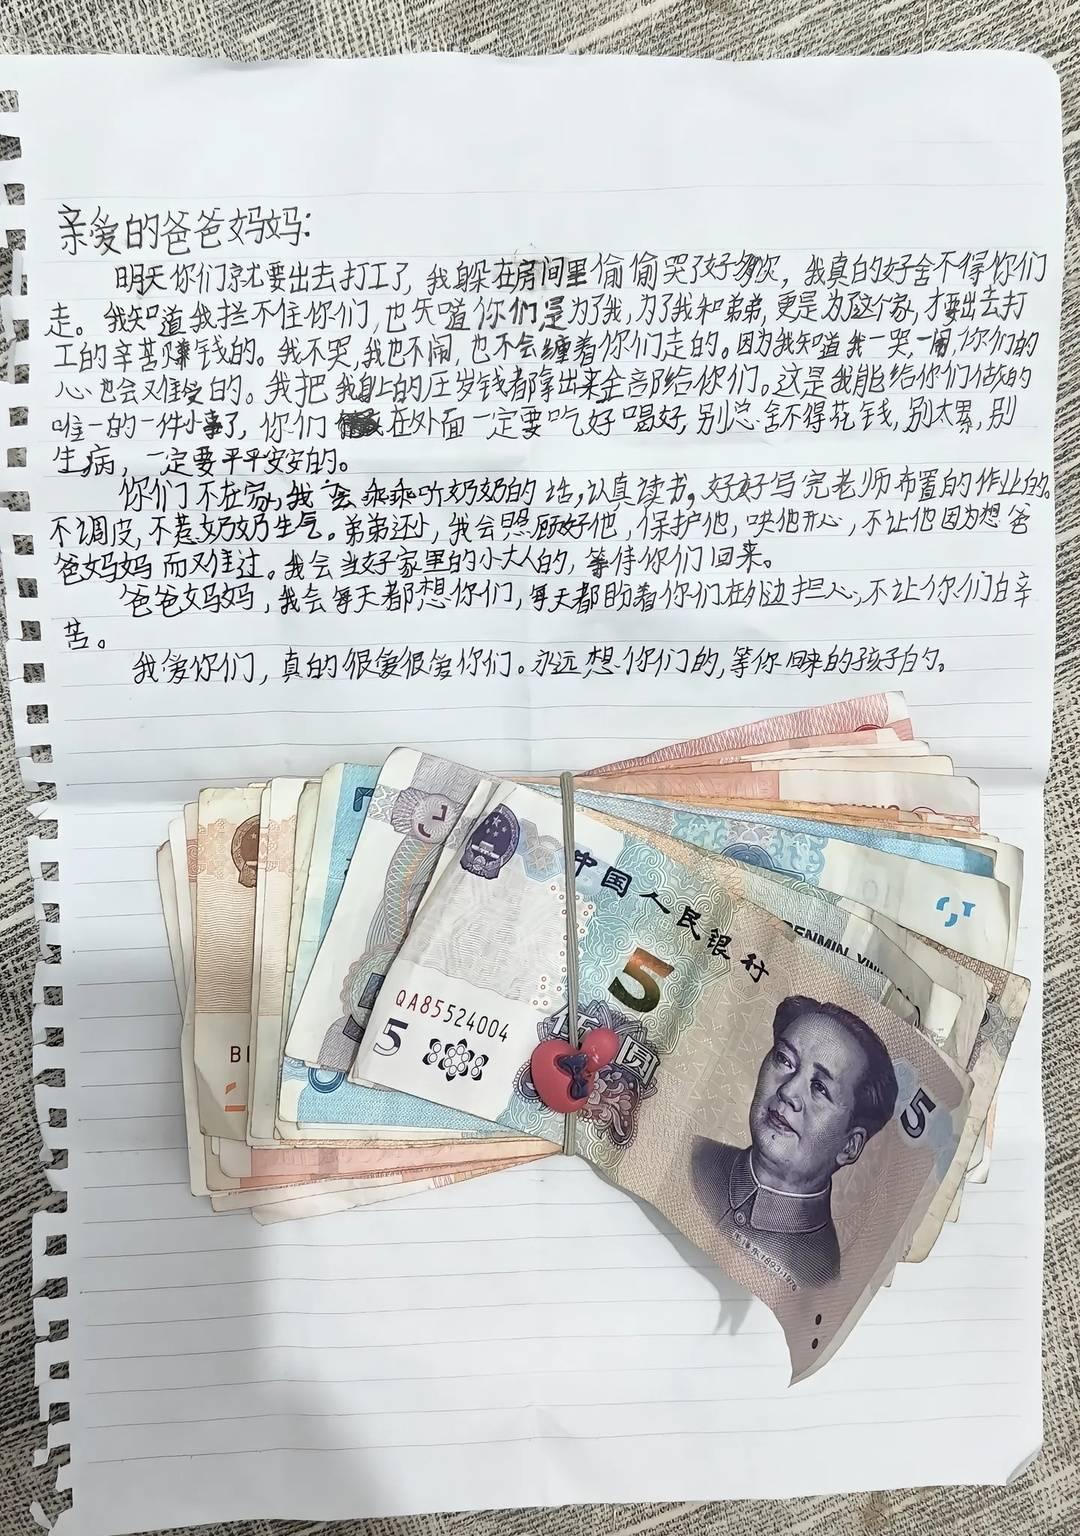 亲爱的爸爸妈妈:
明天你们就要出去打工了，我躲在房间里偷偷哭了好多次，我真的好舍不得你们
走。我知道我拦不住你们,也知道你们是为了我,为了我和弟弟,更是为了这个家,才要出去打
工的辛苦赚钱的。我不哭,我也不闹,也不会缠着你们走的。因为我知道我一哭,一闹,你们的
心也会难受的。我把我身上的压岁钱都拿出来全部给你们。这是我能给你们做的
唯一的一件小事了,你们在外面一定要吃好喝好,别总舍不得花钱,别太累,别
生病,一定要平平安安的。
你们不在家,我会乖乖听奶奶的话,认真读书,好好写完老师布置的作业的。
不调皮,不惹奶奶生气。弟弟还小,我会照顾好他,保护他,哄他开心,不让他因为想爸
爸妈妈而难过。我会当好家里的小大人的,等待你们回来。
爸爸妈妈,我会每天都想你们,每天都盼着你们在外边担心,不让你们白辛
苦。
我爱你们,真的很爱很爱你们。永远想你们的,等你回来的孩子的。
中国人民银行
RENMIN YIN
5
伍圆
QA85524004
5
5
毛泽东1893-1976